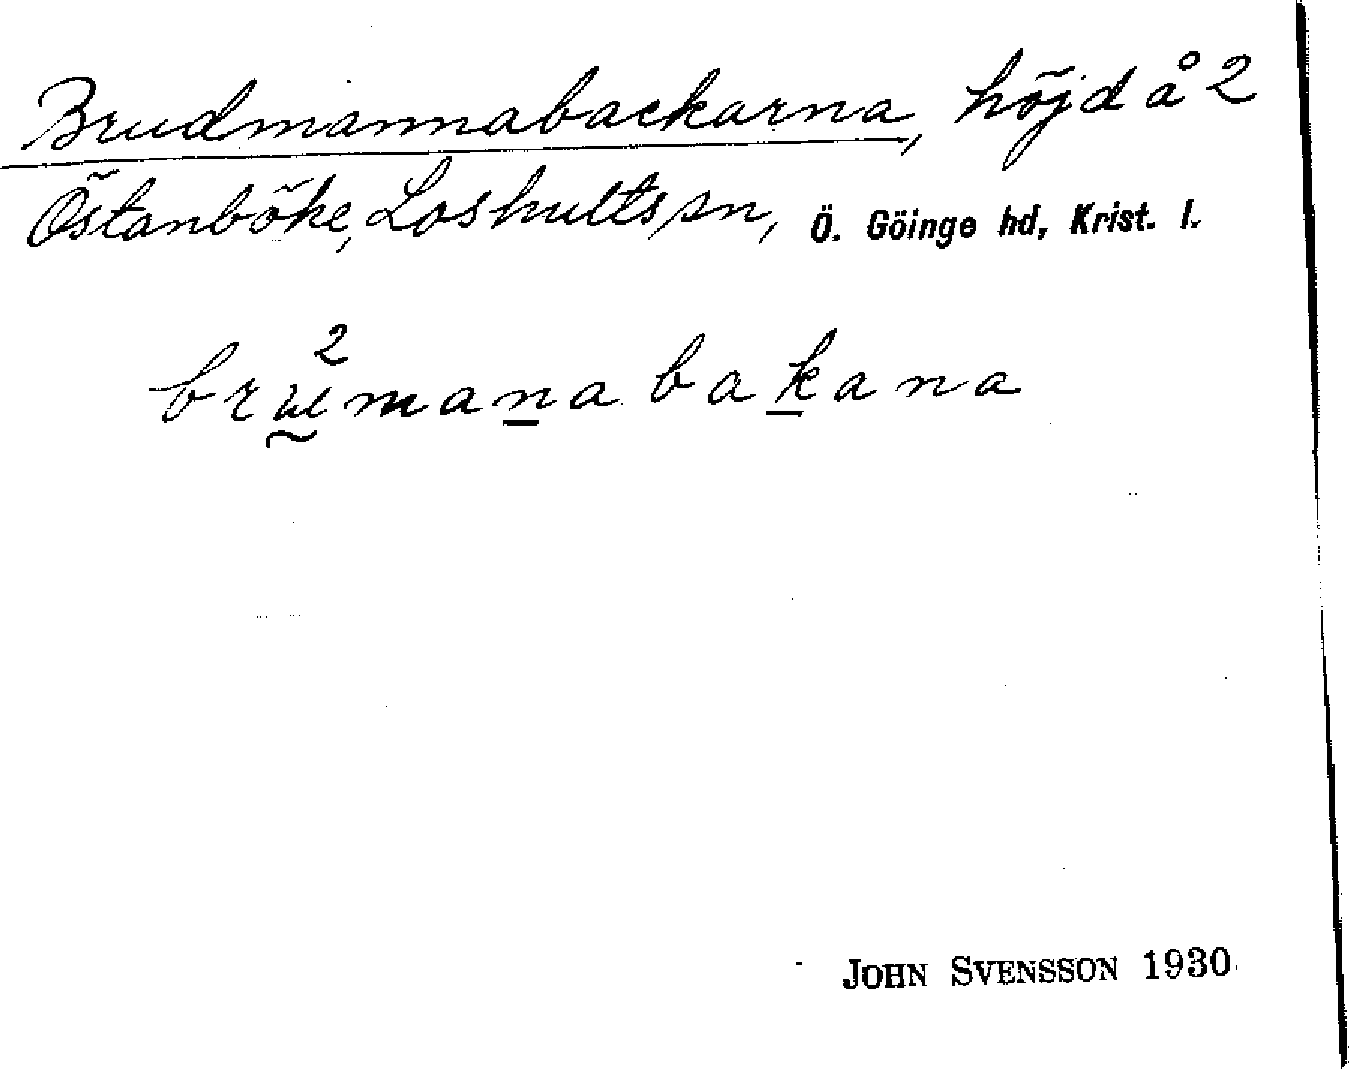 Brudmannabackarna, höjd å 2
Östanböke, Loshults sn, Ö. Göinge hd, Krist. l.
bru²mana bakana
JOHN SVENSSON 1930